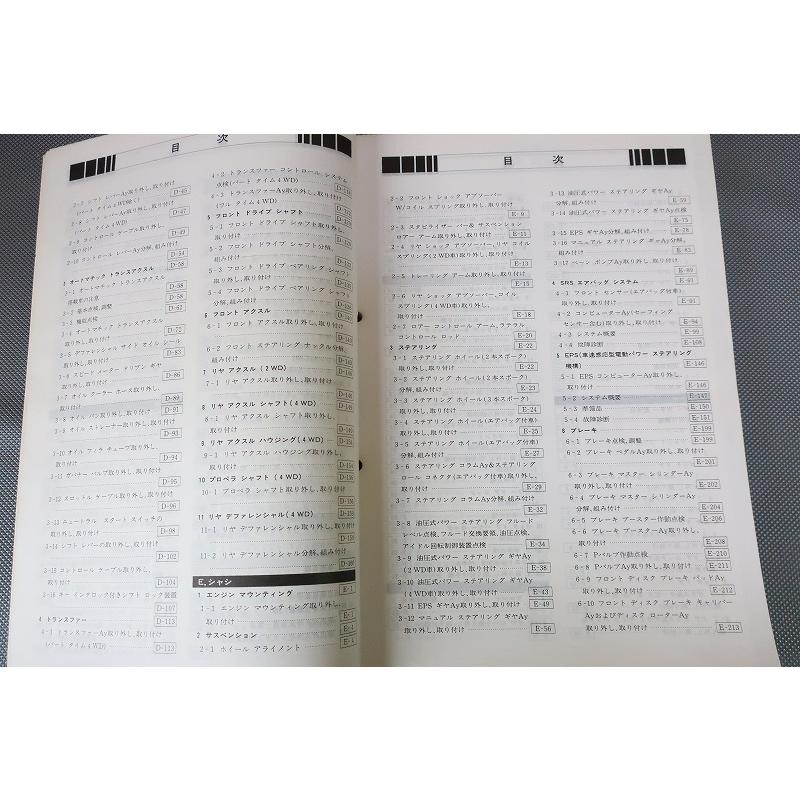 目 次
2-5 シフト レバーAy取り外し、取り付け
(パート タイム4WD除く) D-45
2-8 シフト レバーAy取り外し、取り付け
(パート タイム4WD) D-47
2-9 コントロール ケーブル取り外し、
取り付け D-49
2-10 コントロール レバーAy分解、組み付け D-54
D-58
3 オートマチック トランスアクスル
3-1 オートマチック トランスアクスル
搭載車の注意 D-58
3-2 基本点検、調整 D-58
D-62
取り外し、取り付け D-72
3-5 デファレンシャル サイド オイル シール
取り替え D-83
3-6 スピード メーター ドリブン ギヤ
取り替え D-86
3-7 オイル クーラー ホース取り外し、
取り付け D-89
3-8 オイル パン取り外し、取り付け D-91
3-9 オイル ストレーナー取り外し、取り付け
D-93
3-10 オイル フィラ チューブ取り外し、
取り付け D-94
3-11 ガバナー バルブ取り外し、取り付け
D-95
3-12 スロットル ケーブル取り外し、取り付け
D-96
3-13 ニュートラル スタート スイッチの
取り外し、取り付け D-98
3-14 シフト レバーの取り外し、取り付け
D-102
3-15 コントロール ケーブル取り外し、
取り付け D-104
3-16 キー インタロック付きシフト ロック装置
D-107
4 トランスファー D-113
4-1 トランスファーAy取り外し、取り付け
(パート タイム4WD) D-113
4-2 トランスファー コントロール システム
点検(パート タイム4WD)
4-3 トランスファーAy取り外し、取り付け
(フル タイム4WD)
5 フロント ドライブ シャフト
5-1 フロント ドライブ シャフト取り外し、
取り付け
5-2 フロント ドライブ シャフト分解、
組み付け
5-3 フロント ドライブ ベアリング シャフト
取り外し、取り付け
5-4 フロント ドライブ ベアリング シャフト
分解、組み付け
6 フロント アクスル
6-1 フロント アクスル取り外し、取り付け
6-2 フロント ステアリング ナックル分解、
組み付け
7 リヤ アクスル(2WD)
7-1 リヤ アクスル取り外し、取り付け
8 リヤ アクスル シャフト(4WD)
8-1 リヤ アクスル シャフト取り外し、
取り付け
9 リヤ アクスル ハウジング(4WD)
9-1 リヤ アクスル ハウジング取り外し、
取り付け
10 プロペラ シャフト(4WD)
10-1 プロペラ シャフト取り外し、取り付け
11 リヤ デファレンシャル(4WD)
11-1 リヤ デファレンシャル取り外し、取り付け
11-2 リヤ デファレンシャル分解、組み付け
E.シャシ
1 エンジン マウンティング E-1
1-1 エンジン マウンティング取り外し、
取り付け E-1
2 サスペンション E-4
2-1 ホイール アライメント E-4
目 次
2-2 フロント ショック アブソーバー
W/コイル スプリング取り外し、取り付け
E-9
2-3 スタビライザー バー& サスペンション
ロアー アーム取り外し、取り付け E-11
2-4 リヤ ショック アブソーバー、リヤ コイル
スプリング(2WD車)取り外し、取り付け
E-13
2-5 トレーリング アーム取り外し、取り付け
E-15
2-6 リヤ ショック アブソーバー、コイル
スプリング(4WD車)取り外し、
取り付け E-18
2-7 ロアー コントロール アーム、ラテラル
コントロール ロッド E-20
3 ステアリング E-22
3-1 ステアリング ホイール(2本スポーク)
取り外し、取り付け E-22
3-2 ステアリング ホイール(2本スポーク)
分解、組み付け E-23
3-3 ステアリング ホイール(3本スポーク)
取り外し、取り付け E-24
3-4 ステアリング ホイール(エアバッグ付車)
取り外し、取り付け E-25
3-5 ステアリング ホイール(エアバッグ付車)
分解、組み付け E-27
3-6 ステアリング コラムAy&ステアリング
ロール コネクタ(エアバッグ付車)取り外し、
取り付け E-29
3-7 ステアリング コラムAy分解、組み付け
E-32
3-8 油圧式パワー ステアリング フルード
レベル点検、フルード交換要領、油圧点検、
アイドル回転制御装置点検 E-34
3-9 油圧式パワー ステアリング ギヤAy
(2WD車)取り外し、取り付け E-38
3-10 油圧式パワー ステアリング ギヤAy
(4WD車)取り外し、取り付け E-43
3-11 EPS ギヤAy取り外し、取り付け E-49
3-12 マニュアル ステアリング ギヤAy
取り外し、取り付け E-56
3-13 油圧式パワー ステアリング ギヤAy
分解、組み付け E-59
3-14 油圧式パワー ステアリング ギヤAy点検
E-75
3-15 EPS ギヤAy分解、組み付け E-78
3-16 マニュアル ステアリング ギヤAy分解、
組み付け E-83
3-17 ベーン ポンプAy取り外し、取り付け
E-89
4 SRS エアバッグ システム E-91
4-1 フロント センサー(エアバッグ付車)
取り外し、取り付け E-91
4-2 コンピューターAy(セーフィング
センサー含む)取り外し、取り付け E-94
4-3 システム概要 E-99
4-4 故障診断 E-108
5 EPS(車速感応型電動パワー ステアリング
機構) E-146
5-1 EPS コンピューターAy取り外し、
取り付け E-146
5-2 システム概要 E-147
5-3 準備品 E-150
5-4 故障診断 E-151
6 ブレーキ E-199
6-1 ブレーキ点検、調整 E-199
6-2 ブレーキ ペダルAy取り外し、取り付け
E-201
6-3 ブレーキ マスター シリンダーAy
取り外し、取り付け E-202
6-4 ブレーキ マスター シリンダーAy
分解、組み付け E-204
6-5 ブレーキ ブースター作動点検 E-206
6-6 ブレーキ ブースター取り外し、
取り付け E-208
6-7 Pバルブ作動点検 E-210
6-8 Pバルブ取り外し、取り付け E-211
6-9 フロント ディスク ブレーキ パッドAy
取り外し、取り付け E-212
6-10 フロント ディスク ブレーキ キャリパー
Ayおよびディスク ローターAy
取り外し、取り付け E-213